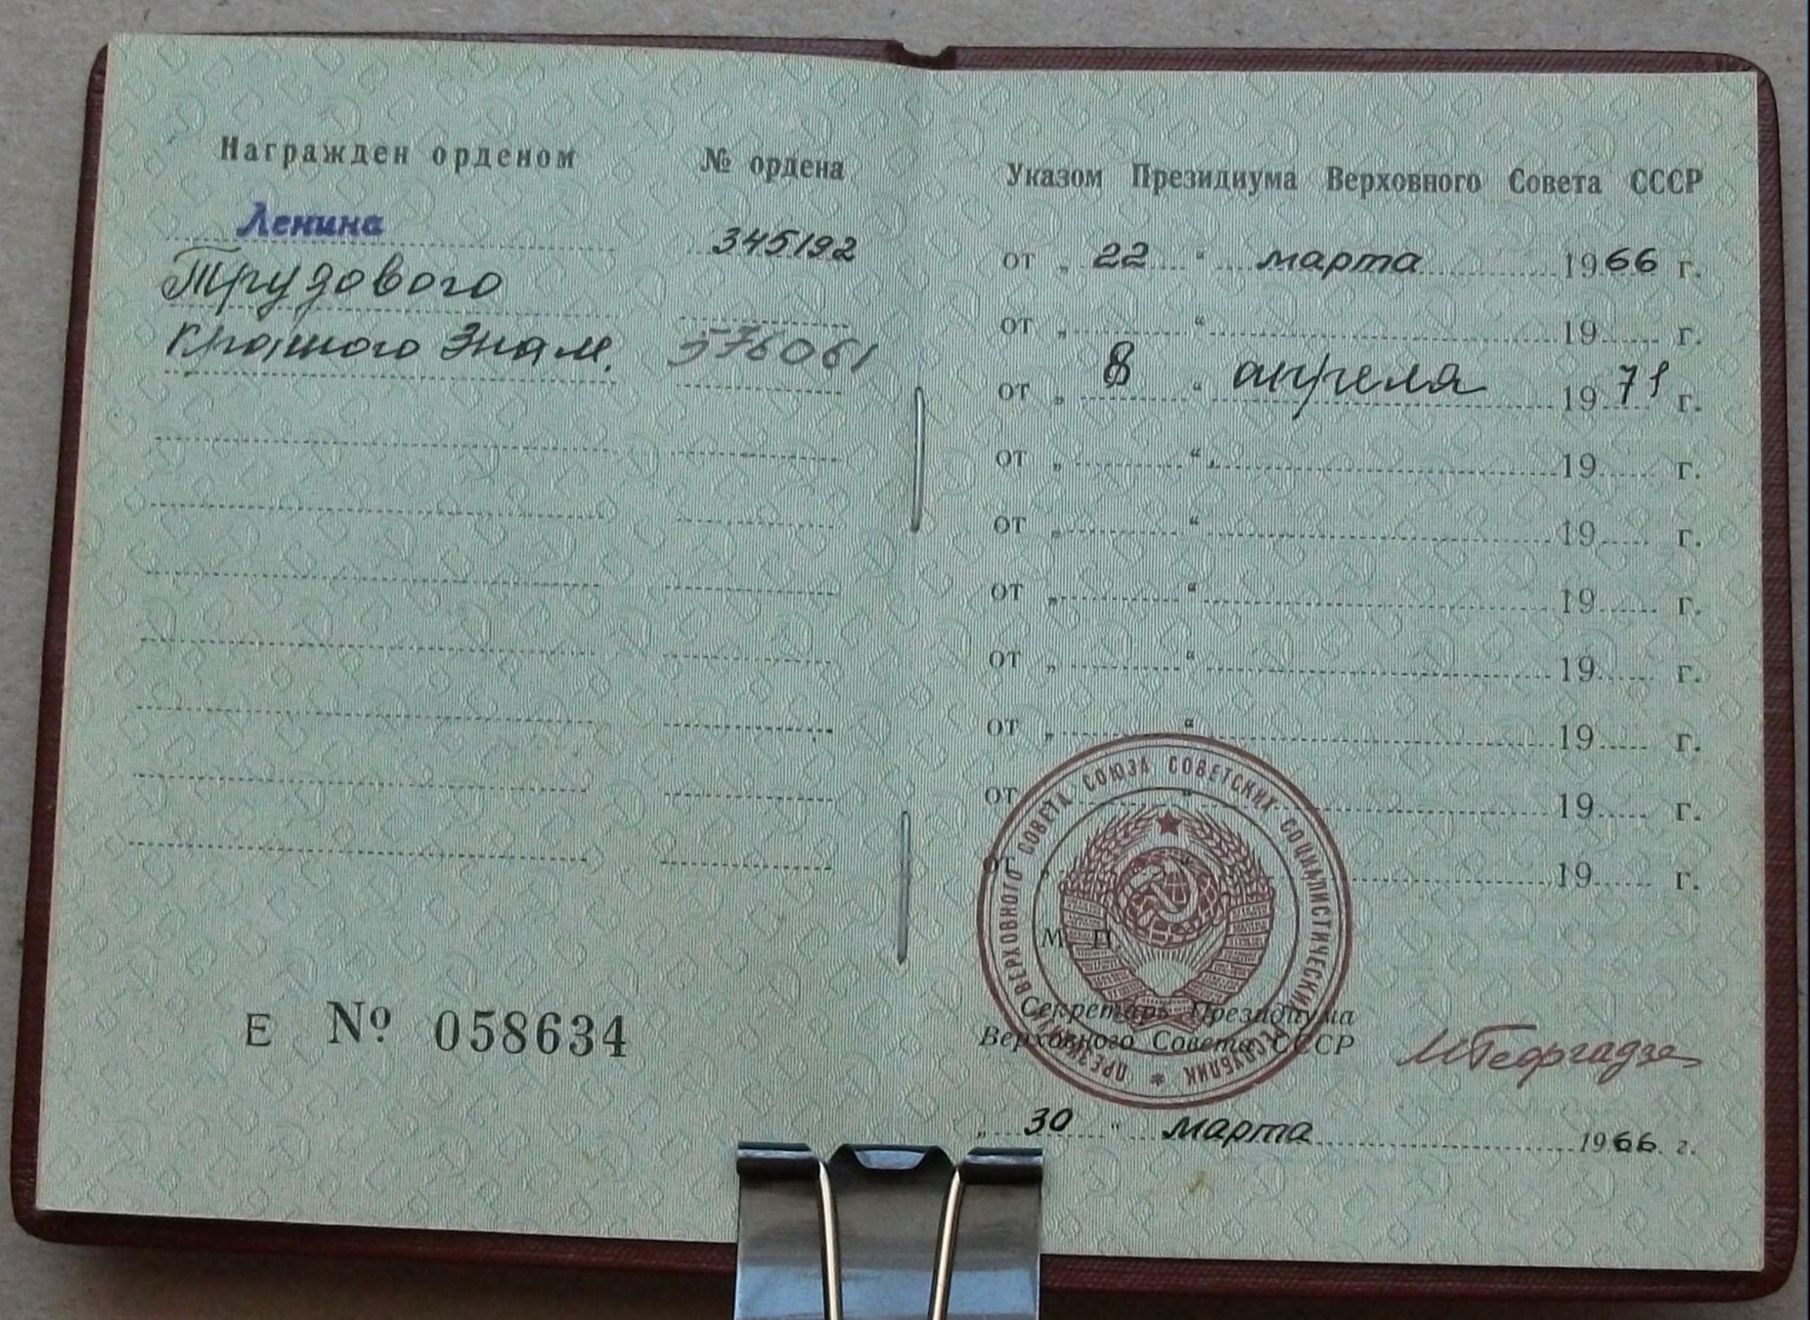 Награжден орденом
№ ордена
Ленина
345192
Трудового
Красного Знам.
576061
Е № 058634
Указом Президиума Верховного Совета СССР
от „ 22 “ марта 1966 г.
от „ “ 19 г.
от „ 8 “ апреля 1971 г.
от „ “ 19 г.
от „ “ 19 г.
от „ “ 19 г.
от „ “ 19 г.
от „ “ 19 г.
от „ “ 19 г.
от „ “ 19 г.
М. П.
ПРЕЗИДИУМ ВЕРХОВНОГО СОВЕТА СОЮЗА СОВЕТСКИХ СОЦИАЛИСТИЧЕСКИХ РЕСПУБЛИК
Секретарь Президиума
Верховного Совета СССР
МГеоргадзе
„ 30 “ марта 1966 г.